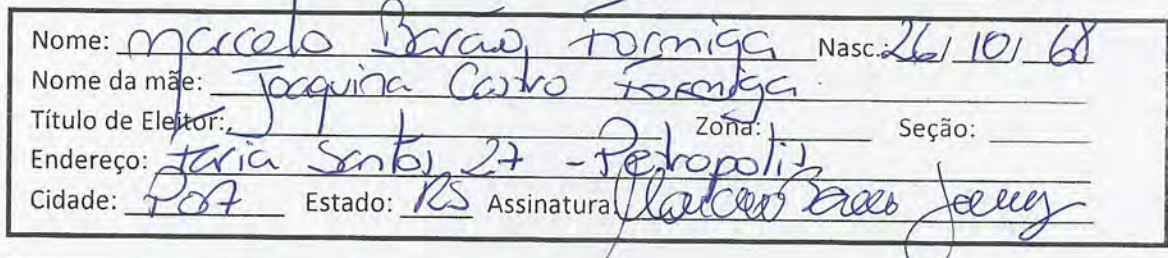 Nome: Marcelo Barão Formiga Nasc.: 26/10/68
Nome da mãe: Joaquina Castro Formiga
Título de Eleitor: Zona: Seção:
Endereço: Faria Santos, 27 - Petropolis
Cidade: POA Estado: RS Assinatura: Marcelo Barao